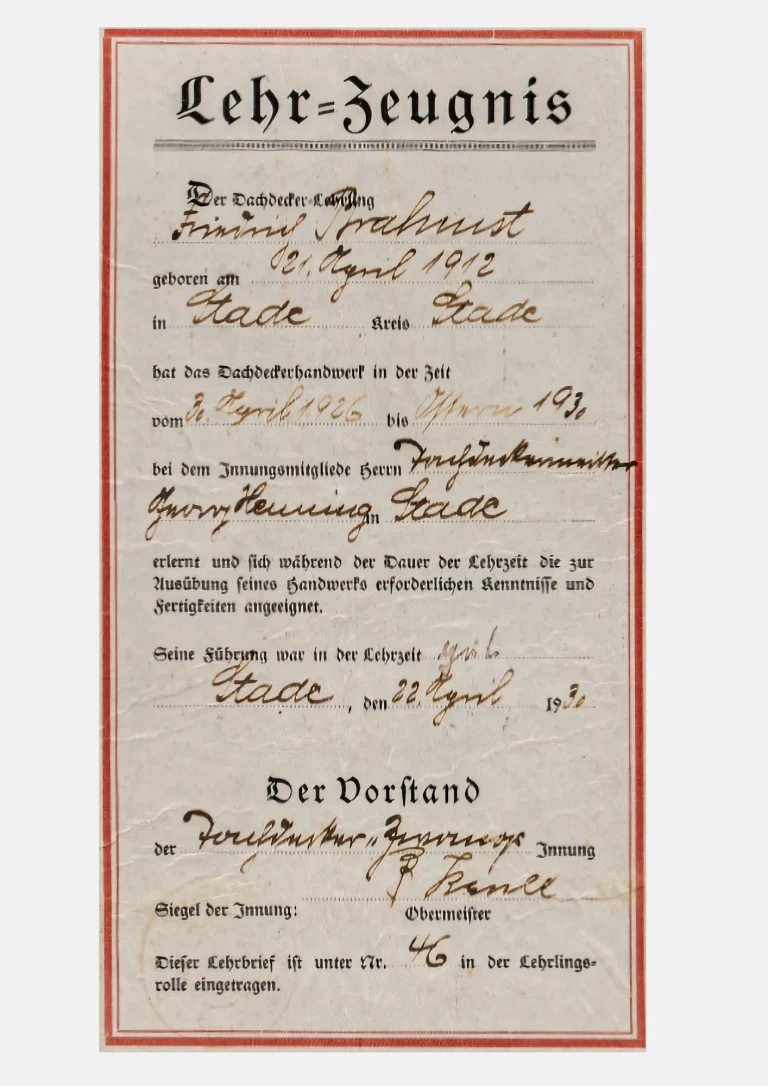 Lehr=Zeugnis
Der Dachdecker=Lehrling
Friedrich Brahmst
geboren am 21. April 1912
in Stade Kreis Stade
hat das Dachdeckerhandwerk in der Zeit
vom 3. April 1926 bis Ostern 1930
bei dem Innungsmitgliede Herrn Dachdeckermeister
Georg Henning in Stade
erlernt und sich während der Dauer der Lehrzeit die zur
Ausübung seines Handwerks erforderlichen Kenntnisse und
Fertigkeiten angeeignet.
Seine Führung war in der Lehrzeit gut
Stade, den 22. April 1930
Der Vorstand
der Dachdecker=Zwangs Innung
Siegel der Innung: Obermeister
Dieser Lehrbrief ist unter Nr. 46 in der Lehrlings=
rolle eingetragen.